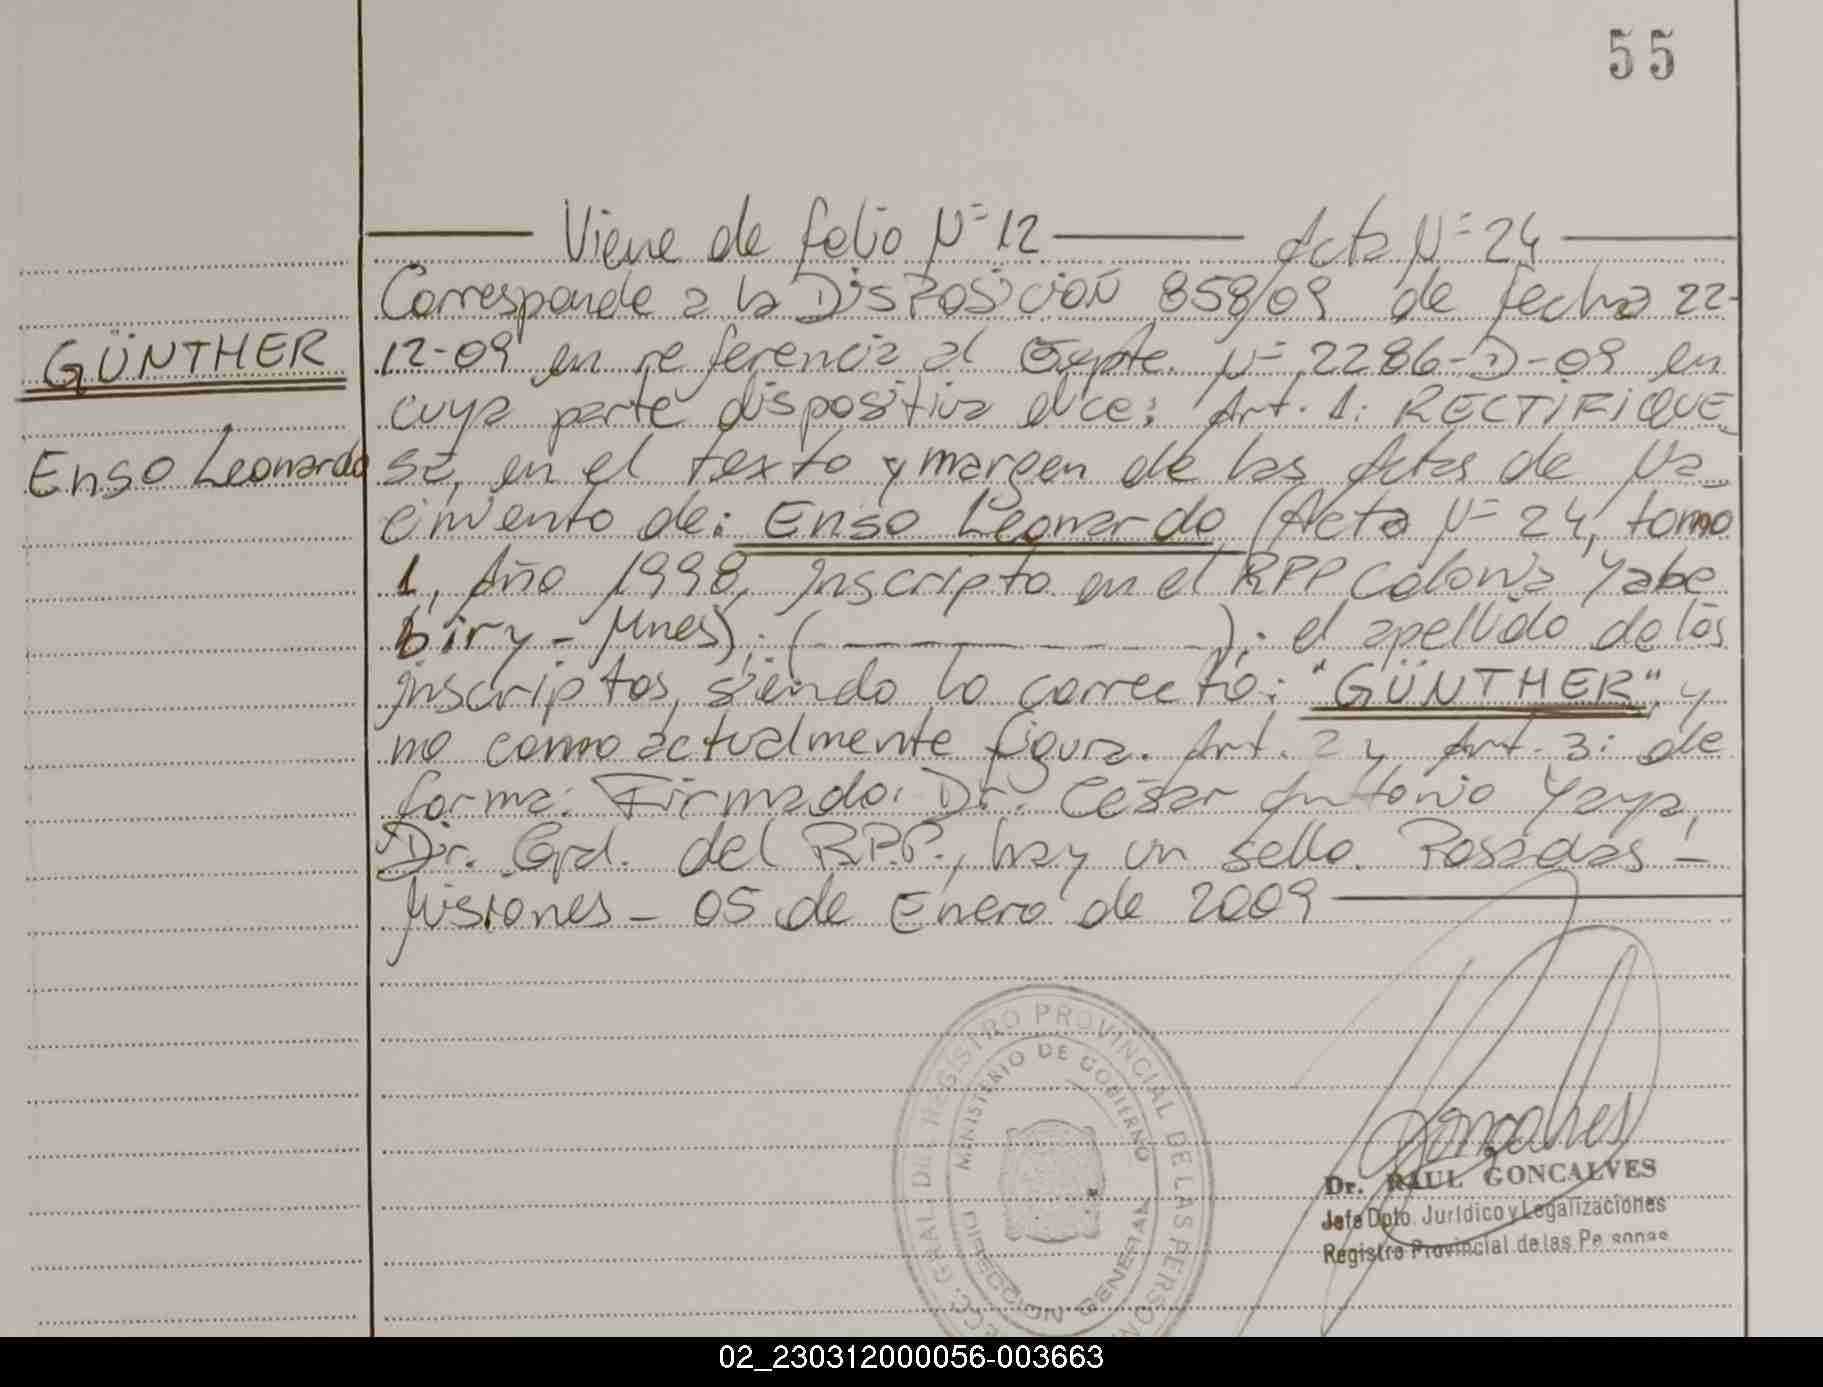 55
Viene de folio Nº 12 Acta Nº 24
Corresponde a la DisPosicioN 858/09 de fecha 22-
12-09 en referencia al Expte. Nº 2286-D-09 en
cuya parte dispositiva dice: Art. 1: RECTIFIQUE
se, en el texto y margen de las Actas de Na
cimiento de: Enso Leonardo (Acta Nº 24, tomo
1, Año 1998, Inscripto en el RPP Colonia Yabe
biry - Mnes); ( ); el apellido de los
inscriptos, siendo lo correcto: "GÜNTHER", y
no como actualmente figura. Art. 2 y Art. 3: de
forma. Firmado: Dr. César Antonio Yaya,
Dir. Gral. del R.P.P., hay un sello. Posadas -
Misiones - 05 de Enero de 2009
GÜNTHER
Enso Leonardo
REGISTRO PROVINCIAL DE LAS PERSON
MINISTERIO DE GOBIERNO
DIRECCION GENERAL
Goncalves
Dr. RAUL GONCALVES
Jefe Dpto. Jurídico y Legalizaciones
Registro Provincial de las Pe sonas
02_230312000056-003663